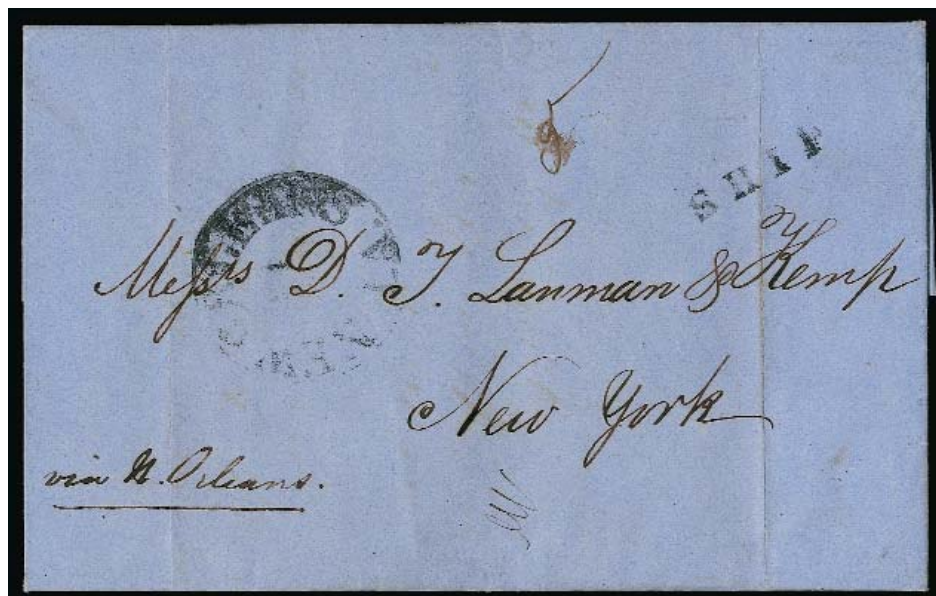 SHIP
Mess^rs D. T. Lanman & Kemp
New York
via N. Orleans.